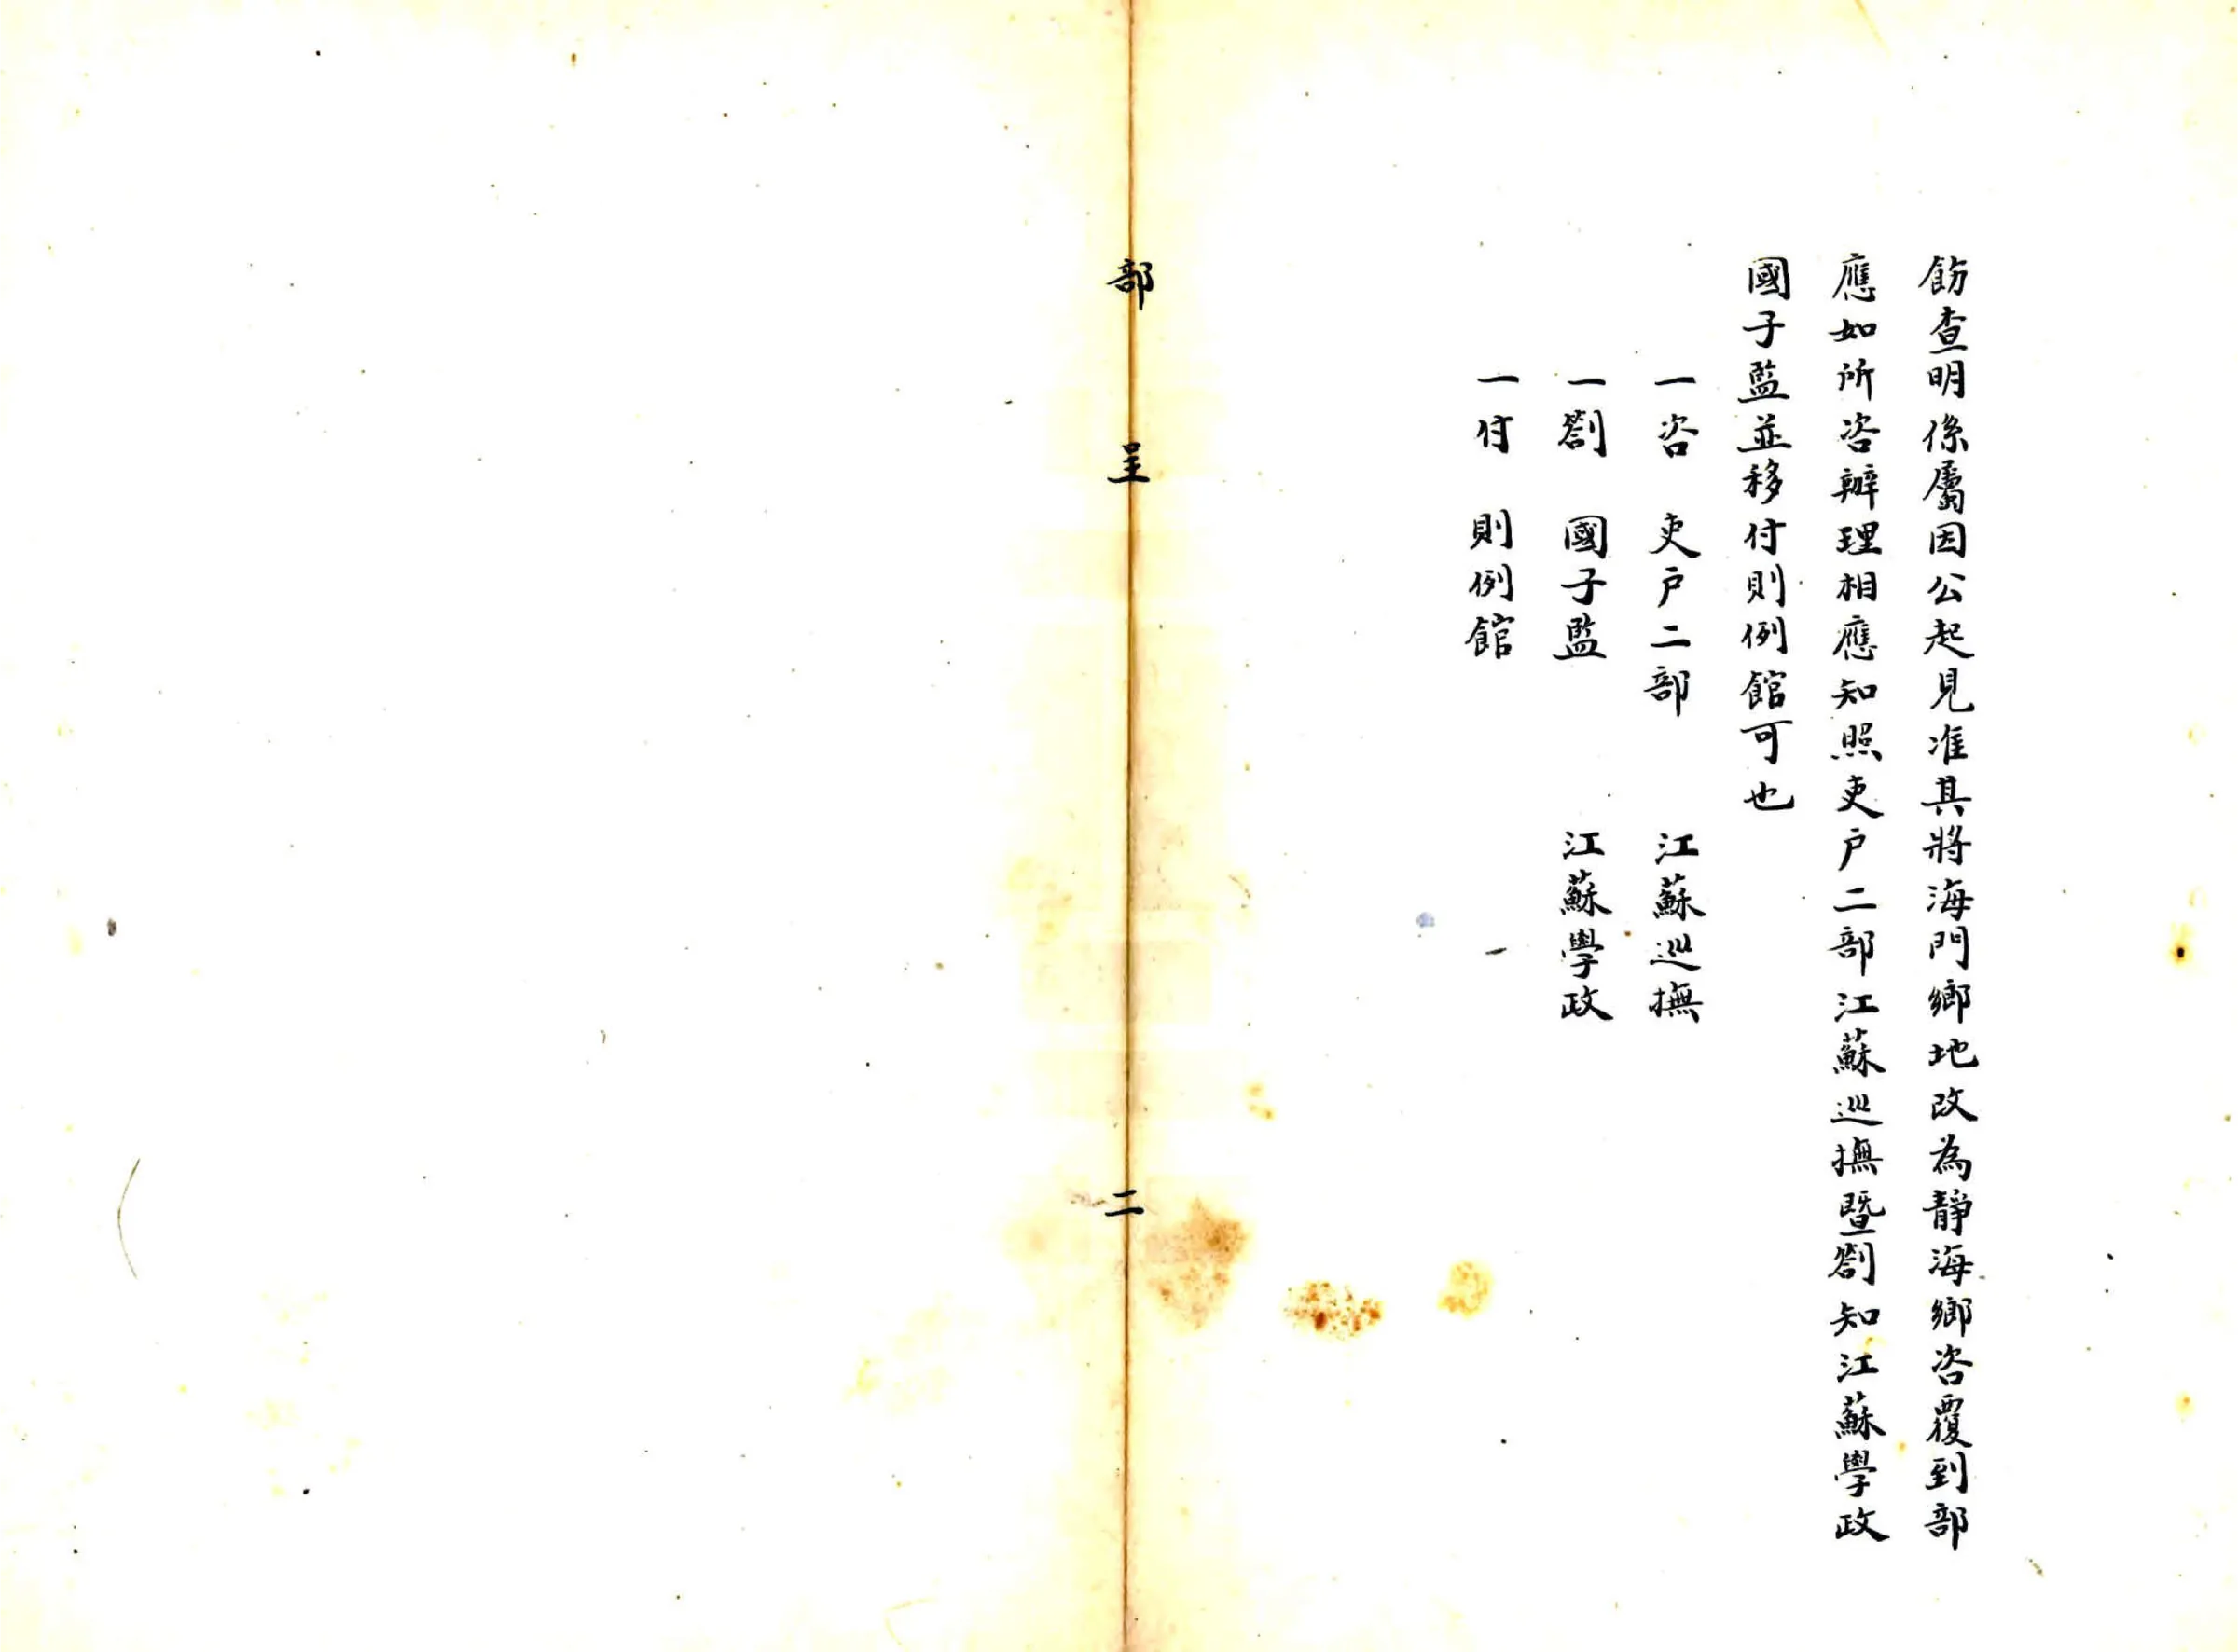 飭查明係屬因公起見准其將海門鄉地改為靜海鄉咨覆到部
應如所咨辦理相應知照吏戶二部江蘇巡撫暨劄知江蘇學政
國子監並移付則例館可也
一咨　吏戶二部　江蘇巡撫
一劄　國子監　江蘇學政
一付　則例館
部　呈　二